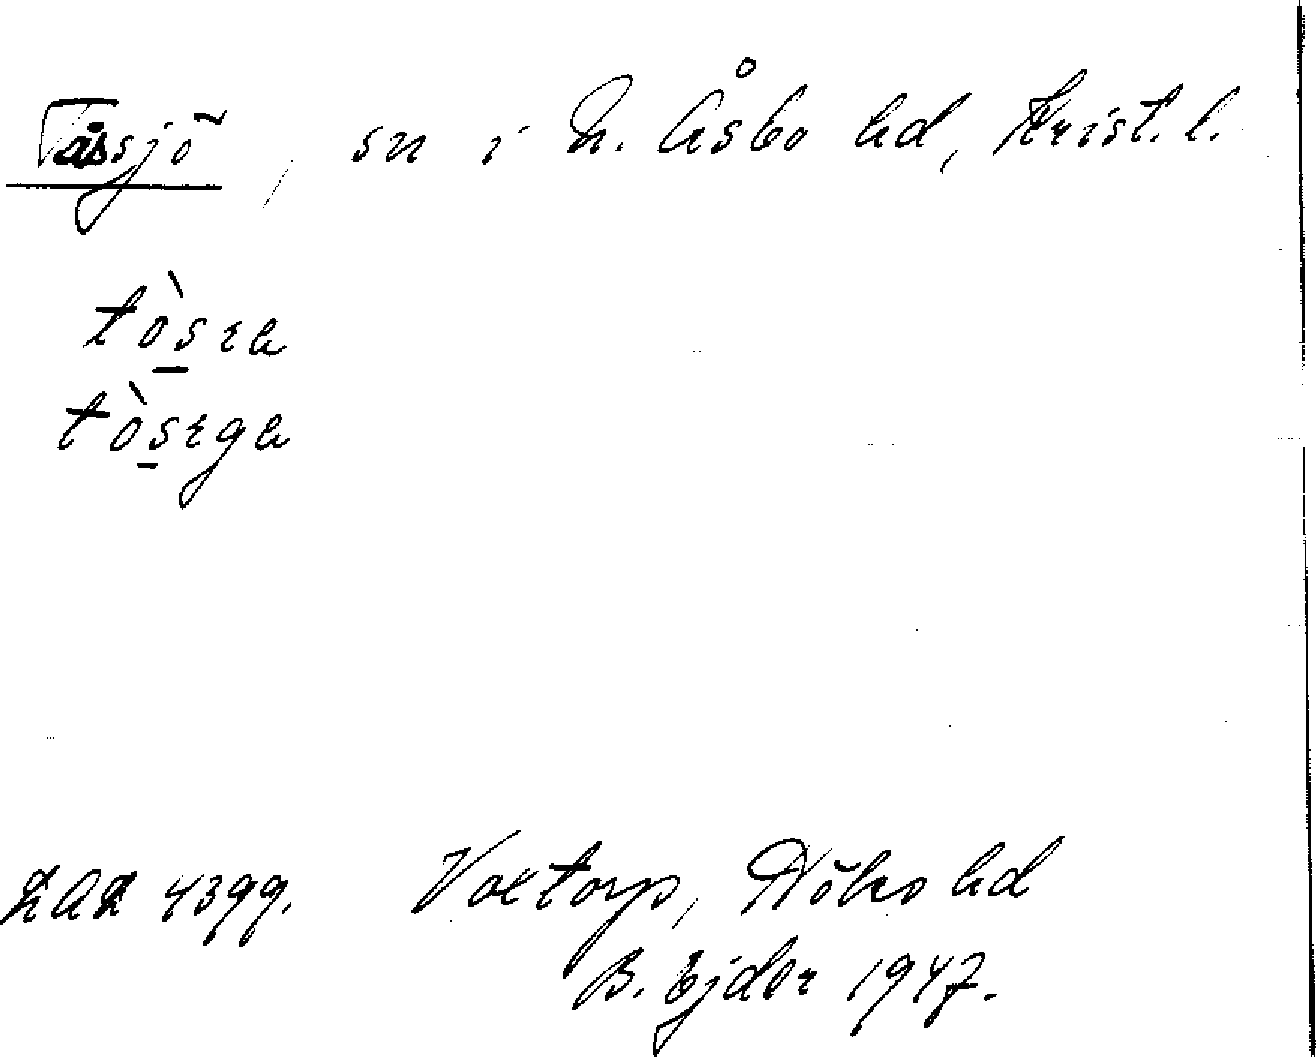 Tåssjö, sn i N. Åsbo hd, Krist. l.
tòsɛa
tòsɛga
LAL 4399. Voxtorp, Höks hd
B. Ejder 1947.